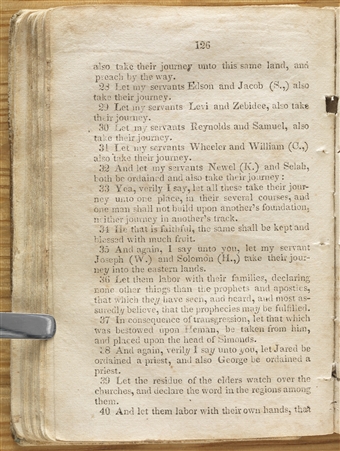 126
also take their journey unto this same land, and
preach by the way.
28 Let my servants Edson and Jacob (S.,) also
take their journey.
29 Let my servants Levi and Zebidee, also take
their journey.
30 Let my servants Reynolds and Samuel, also
take their journey.
31 Let my servants Wheeler and William (C.,)
also take their journey.
32 And let my servants Newel (K.) and Selah,
both be ordained and also take their journey:
33 Yea, verily I say, let all these take their jour-
ney unto one place, in their several courses, and
one man shall not build upon another's foundation,
neither journey in another's track.
34 He that is faithful, the same shall be kept and
blessed with much fruit.
35 And again, I say unto you, let my servant
Joseph (W.) and Solomon (H.,) take their jour-
ney into the eastern lands.
36 Let them labor with their families, declaring
none other things than the prophets and apostles,
that which they have seen, and heard, and most as-
suredly believe, that the prophecies may be fulfilled.
37 In consequence of transgression, let that which
was bestowed upon Heman, be taken from him,
and placed upon the head of Simonds.
38 And again, verily I say unto you, let Jared be
ordained a priest, and also George be ordained a
priest.
39 Let the residue of the elders watch over the
churches, and declare the word in the regions among
them.
40 And let them labor with their own hands, that